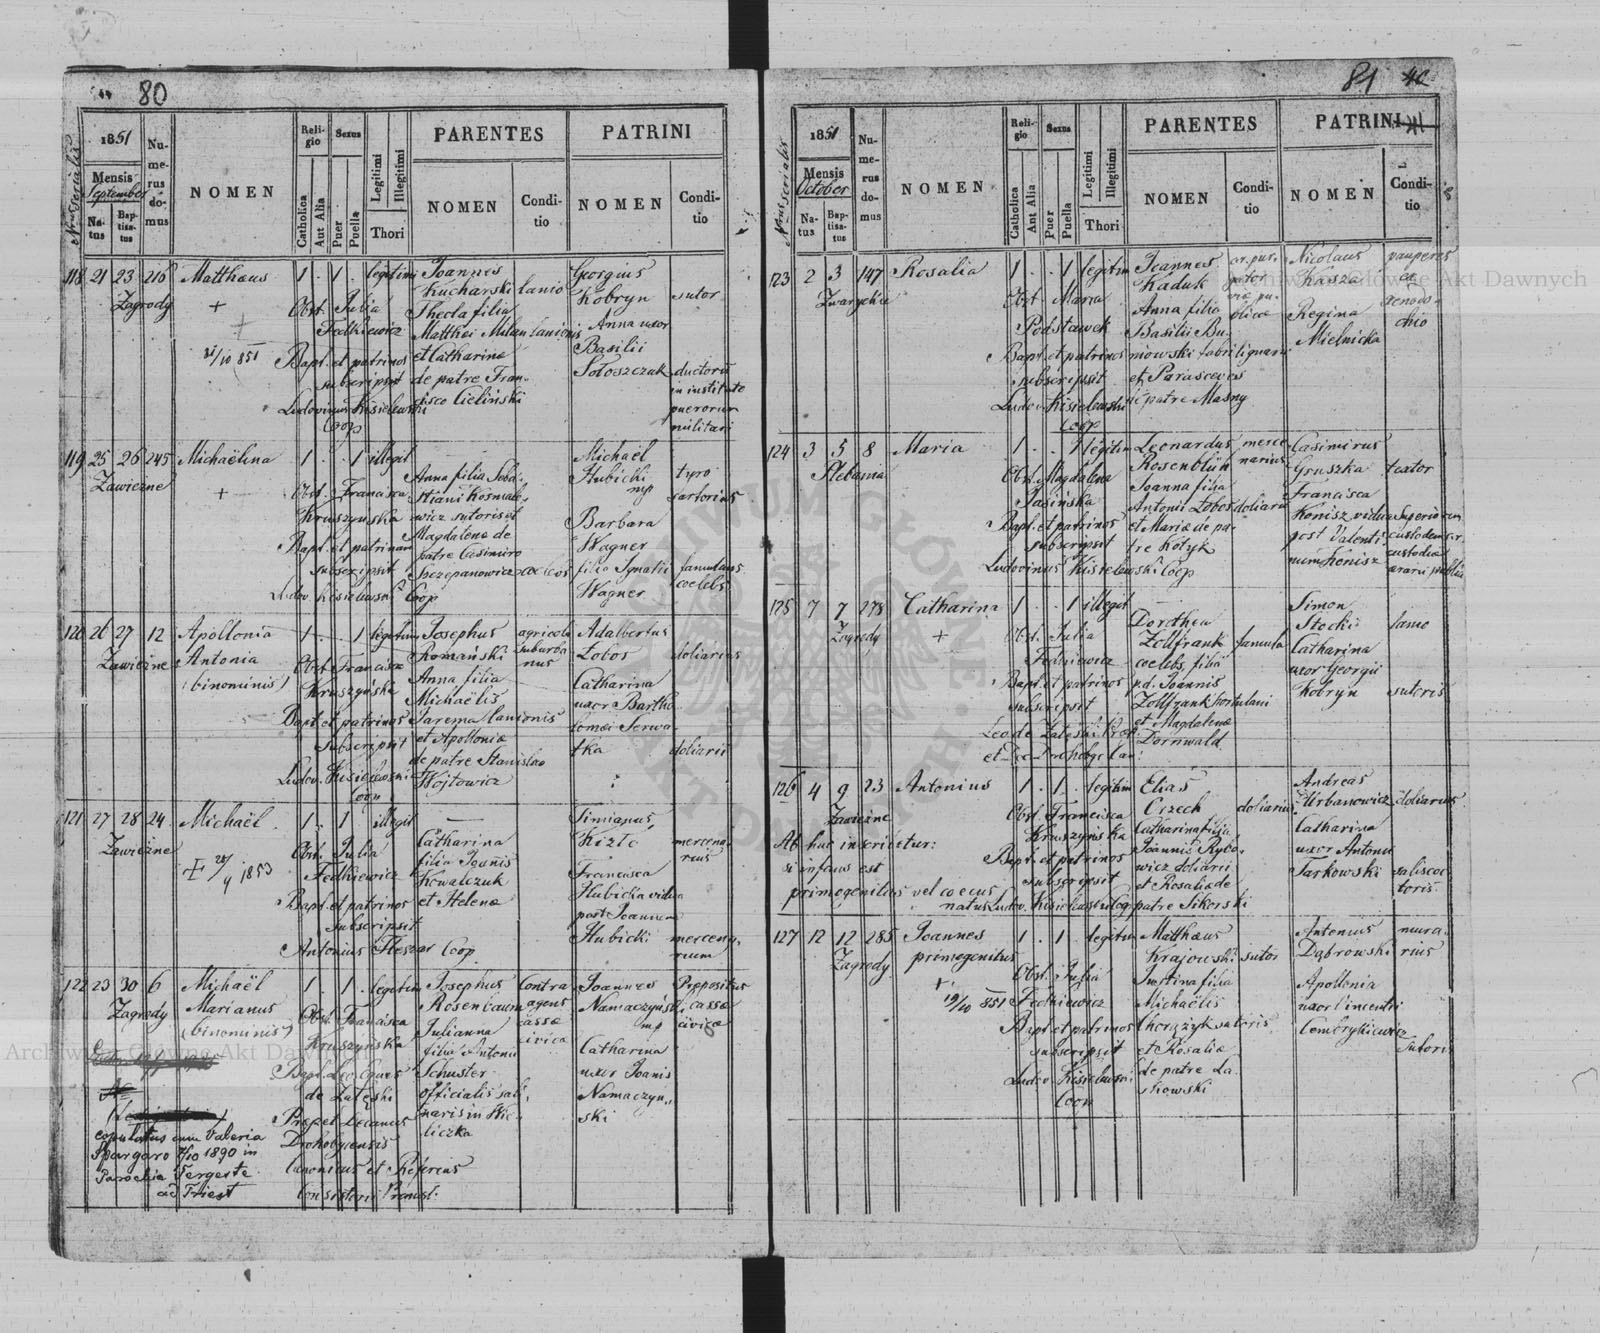 80
1851
Mensis
September
Natus
Baptisatus
Numerus domus
NOMEN
Religio
Catholica
Aut Alia
Sexus
Puer
Puella
Legitimi
Illegitimi
Thori
PARENTES
NOMEN
Conditio
PATRINI
NOMEN
Conditio
118 21 23 216 Matthaeus 1 . 1 . legitimi Joannes Georgius
Kucharski lanio Kobryn sutor
Zagrody + Obst. Julia Thecla filia Anna uxor
Fedkiewicz Matthei Milan lanionis Basilii
21/10 851 Bapt. et patrinos et Catharinae Soloszczuk ductoris
subscripsit de patre Fran- in instituto
Ludovicus Kisielewski cisco Cieliński puerorum
Coop militari
119 25 26 245 Michaëlina 1 . . 1 illegit Michaël
Zawiezne Anna filia Seba- Hubicki tyro
+ Obst. Francisca stiani Kosmale- mp sartorius
Kruszyńska wicz sutoris et Barbara
Bapt. et patrinam Magdalenae de Wagner
subscripsit patre Casimiro filia Ignatii famulans
Ludov. Kisielewski Coop Szczepanowicz coelebs Wagner coelebs
120 26 27 12 Apollonia 1 . . 1 legitim Josephus agricola Adalbertus
Zawiezne Antonia Romański suburba- Łobos doliarius
(binominis) Obst. Francisca Anna filia nus Catharina
Kruszyńska Michaëlis uxor Bartho-
Bapt. et patrinos Jarema lanionis lomaei Serwa-
subscripsit et Apolloniae tka doliarii
de patre Stanislao
Ludov. Kisielewski Wojtowicz
Coop
121 27 28 24 Michaël 1 . 1 . illegit Simianus
Zawiezne Obst. Julia Catharina Kizlo mercena-
Fedkiewicz filia Joanis rius
Kowalczuk Francisca
Bapt. et patrinos et Helenae Hubicka vidua
subscripsit post Joannem
Antonius Fleszar Coop Hubicki mercena-
rium
122 23 30 6 Michaël 1 . 1 . legitim Josephus Contra Joannes Prepositus
Zagrody Marianus Rosenbaum agens Namaczyński cassae
(binominis) Obst. Francisca Julianna cassae mp civicae
Kruszyńska filia Antonii civica Catharina
Bapt. Leo Eques Schuster uxor Joanis
de Załęski officialis sali- Namaczyn-
Praep. et Decanus naris in Wie- ski
Drohobycensis liczka
Canonicus et Referens
Consistorii Premisl:
copulatus cum Valeria
Spargaro 7/10 1890 in
Parochia Tergeste
ad Triest
81
1851
Mensis
October
Natus
Baptisatus
Numerus domus
NOMEN
Religio
Catholica
Aut Alia
Sexus
Puer
Puella
Legitimi
Illegitimi
Thori
PARENTES
NOMEN
Conditio
PATRINI
NOMEN
Conditio
123 2 3 147 Rosalia 1 . . 1 legitim Joannes Nicolaus pauperes
Zwaryckie Kaduk Kasza ex
Obst. Maria Anna filia Regina xenodo-
Podstawek Basilii Bu- Mielnicka chio
Bapt. et patrinos niowski fabri lignarii
subscripsit et Parascevis
Ludov. Kisielewski de patre Masny
Coop
124 3 5 8 Maria 1 . . 1 legitim Leonardus merce- Casimirus
Plebania Obst. Magdalena Rosenblün narius Gruszka textor
Jasińska Joanna filia Francisca
Bapt. et patrinos Antonii Łobos doliarii Konisz vidua
subscripsit et Mariae de pa- post Valenti-
Ludovinus Kisielewski Coop tre Kotyk num Konisz
125 7 7 278 Catharina 1 . . 1 illegit Simon
Zagrody + Obst. Julia Dorothea Stocki lanio
Fedkiewicz Zollfrank famula Catharina
Bapt. et patrinos coelebs, filia uxor Georgii
subscripsit pd. Joannis Kobryn sutoris
Leo de Załęski Zollfrank hortulani
et Magdalenae
Dornwald
126 4 9 23 Antonius 1 . 1 . legitim Elias Andreas
Zawiezne Obst. Francisca Czzech doliarius Urbanowicz doliarius
Kruszyńska Catharina filia Catharina
Bapt. et patrinos Joannis Rybo- uxor Antonii
subscripsit wicz doliarii Tarkowski saliscoc-
Ludov. Kisielewski Coop et Rosaliae de toris
patre Sikorski
Ab huc inscribetur:
si infans est
primogenitus vel coecus
natus
127 12 12 285 Joannes 1 . 1 . legitim Matthaeus Antonius mura-
Zagrody primogenitus Krajowski sutor Dąbrowski rius
+ Obst. Julia Justina filia Apollonia
19/10 851 Fedkiewicz Michaëlis uxor Vincentii
Bapt. et patrinos Chorążyk sutoris Cembrykiewicz
subscripsit et Rosaliae sutoris
Ludov. Kisielewski de patre La-
Coop skowski
Archiwum Główne Akt Dawnych
Archiwum Główne Akt Dawnych
ARCHIWUM GŁÓWNE AKT DAWNYCH